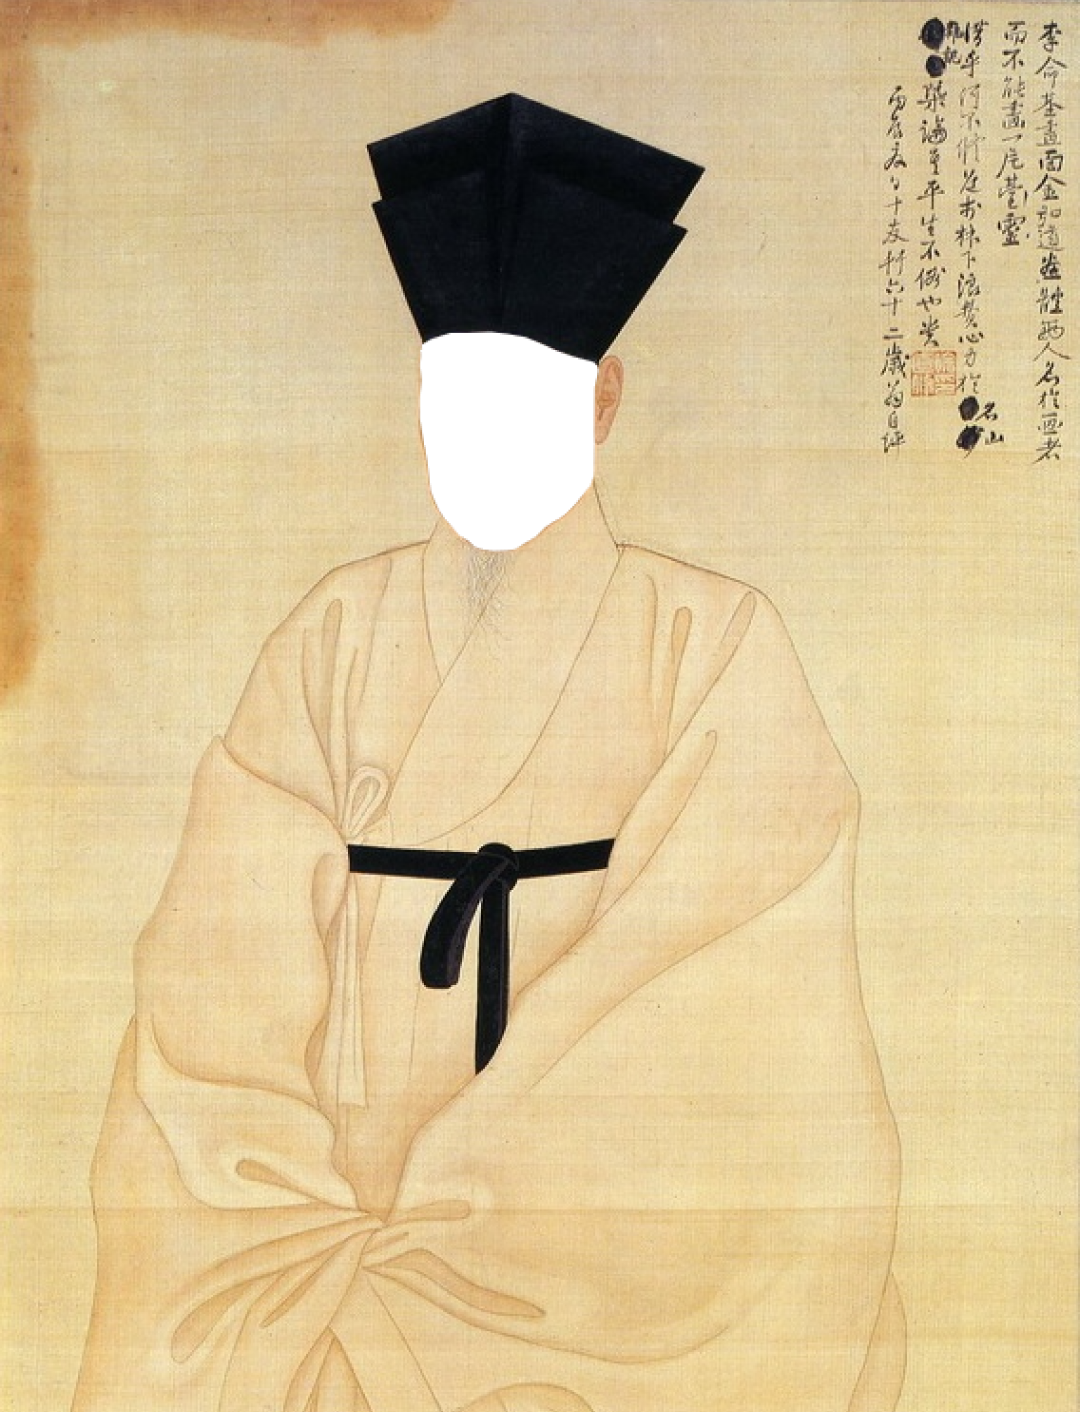 李命基畫面金弘道畫體兩人名於画者
而不能畫一片臺靈
惜乎何不修道於林下浪費心力於名山
雜記槩論其平生不俗也貴
丙辰夏日十友軒六十二歲翁自評